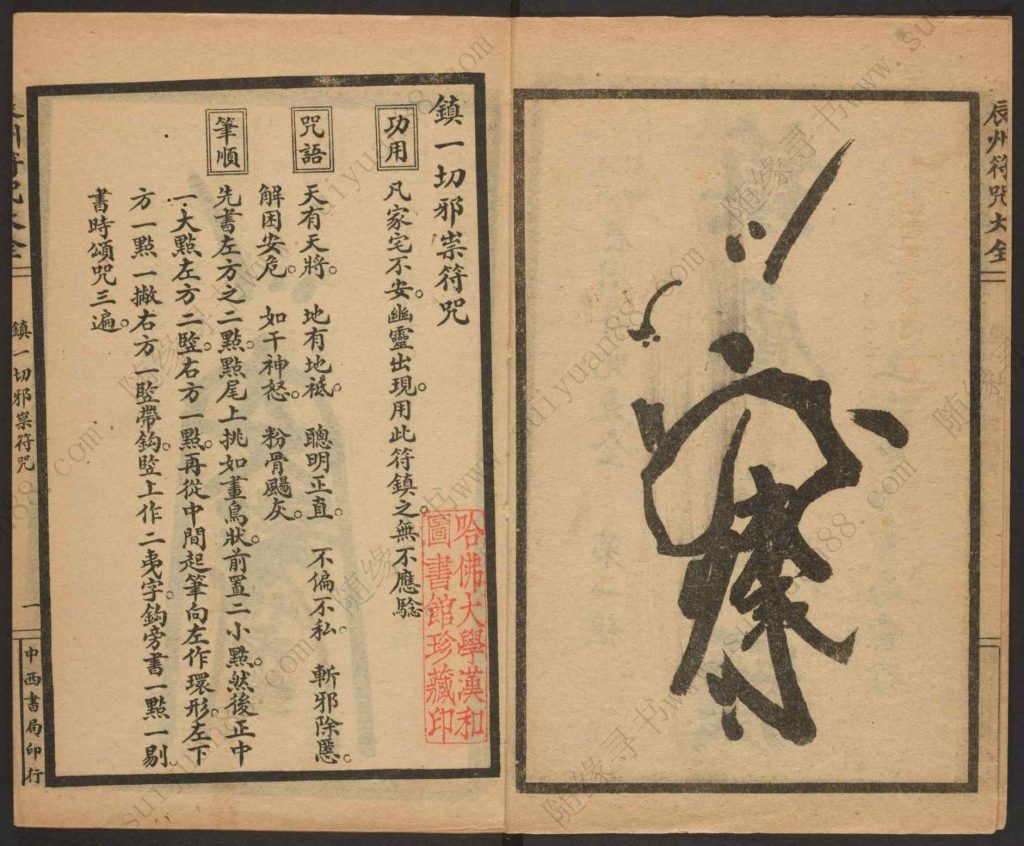 辰州符咒大全
鎮一切邪祟符咒
功用
凡家宅不安。幽靈出現。用此符鎮之。無不應騐
咒語
天有天將。 地有地祇。 聰明正直。 不偏不私。 斬邪除慝。
解困安危。 如干神怒。 粉骨颺灰。
筆順
先書左方之二點。點尾上挑如畫鳥狀。前置二小點。然後正中
一大點左方二竪右方一點。再從中間起筆向左作環形。左下
方一點一撇。右方一竪帶鈎。竪上作二夷字。鈎旁書一點一剔。
書時頌咒三遍。
鎮一切邪祟符咒
一
中西書局印行
哈佛大學漢和
圖書館珍藏印
随缘寻书www.suiyuan888.com